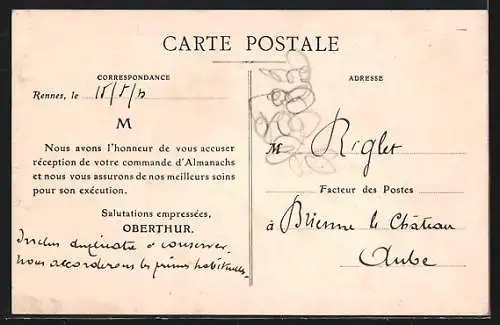 CARTE POSTALE
CORRESPONDANCE
Rennes, le 15/5/
M
Nous avons l'honneur de vous accuser
réception de votre commande d'Almanachs
et nous vous assurons de nos meilleurs soins
pour son exécution.
Salutations empressées,
OBERTHUR.
Inclus duplicata à conserver.
Nous accorderons les primes habituelles.
ADRESSE
M Riglet
Facteur des Postes
à Brienne le Château
Aube